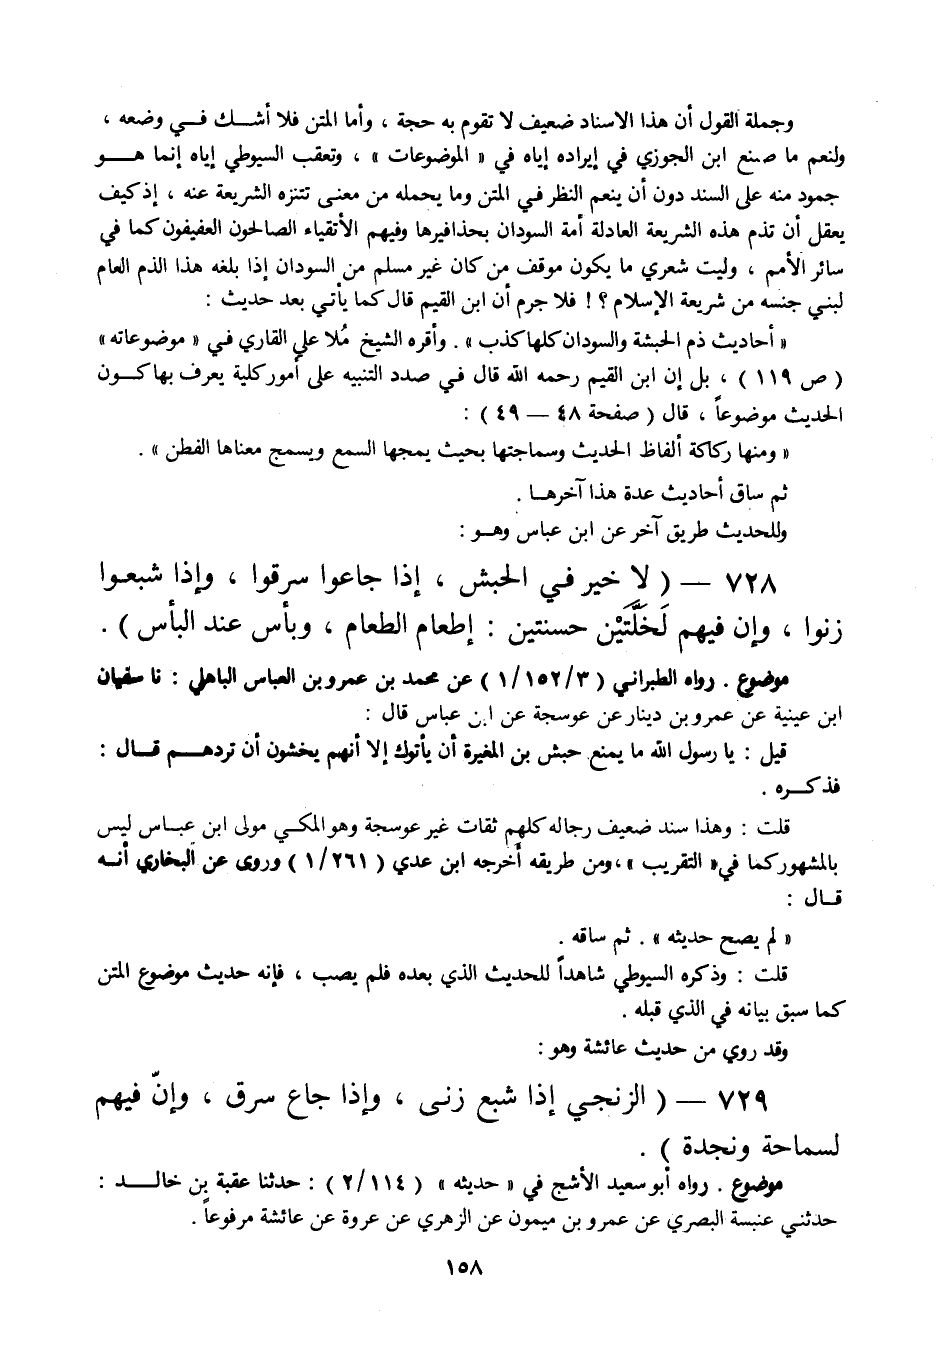 وجملة القول أن هذا الاسناد ضعيف لا تقوم به حجة ، وأما المتن فلا أشـك فـي وضعه ،
ولنعم ما صنع ابن الجوزي في إيراده إياه في « الموضوعات » ، وتعقب السيوطي إياه إنما هـو
جمود منه على السند دون أن ينعم النظر فـي المتن وما يحمله من معنى تتنزه الشريعة عنه ، إذ كيف
يعقل أن تذم هذه الشريعة العادلة أمة السودان بحذافيرها وفيهم الأتقياء الصالحون العفيفون كما في
سائر الأمم ، وليت شعري ما يكون موقف من كان غير مسلم من السودان إذا بلغه هذا الذم العام
لبني جنسه من شريعة الإسلام ؟ ! فلا جرم أن ابن القيم قال كما يأتي بعد حديث :
« أحاديث ذم الحبشة والسودان كلها كذب » . وأقره الشيخ مُلا علي القاري فـي « موضوعاته »
( ص ١١٩ ) ، بل إن ابن القيم رحمه الله قال فـي صدد التنبيه على أمور كلية يعرف بها كـون
الحديث موضوعاً ، قال ( صفحة ٤٨ — ٤٩ ) :
« ومنها ركاكة ألفاظ الحديث وسماجتها بحيث يمجها السمع ويسمج معناها الفطن » .
ثم ساق أحاديث عدة هذا آخرهـا .
وللحديث طريق آخر عن ابن عباس وهـو :
٧٢٨ — ( لا خير فـي الحبش ، إذا جاعوا سرقوا ، وإذا شبعـوا
زنوا ، وإن فيهم لَخَلَّتَيْن حسنتين : إطعام الطعام ، وبأس عند البأس ) .
موضوع . رواه الطبراني ( ١/١٥٢/٣ ) عن محمد بن عمرو بن العباس الباهلي : نا سفيان
ابن عينية عن عمرو بن دينار عن عوسجة عن ابن عباس قال :
قيل : يا رسول الله ما يمنع حبش بن المغيرة أن يأتوك إلا أنهم يخشون أن تردهـم قـال :
فذكـره .
قلت : وهذا سند ضعيف رجاله كلهم ثقات غير عوسجة وهو المكـي مولى ابن عبـاس ليس
بالمشهور كما في « التقريب » ، ومن طريقه أخرجه ابن عدي ( ١/٢٦١ ) وروى عن البخاري أنـه
قـال :
« لم يصح حديثه » . ثم ساقه .
قلت : وذكره السيوطي شاهداً للحديث الذي بعده فلم يصب ، فإنه حديث موضوع المتن
كما سبق بيانه في الذي قبله .
وقد روي من حديث عائشة وهو :
٧٢٩ — ( الزنجي إذا شبع زنى ، وإذا جاع سرق ، وإنّ فيهم
لسماحة ونجدة ) .
موضوع . رواه أبو سعيد الأشج في « حديثه » ( ٢/١١٤ ) : حدثنا عقبة بن خالـد :
حدثني عنبسة البصري عن عمرو بن ميمون عن الزهري عن عروة عن عائشة مرفوعاً .
١٥٨